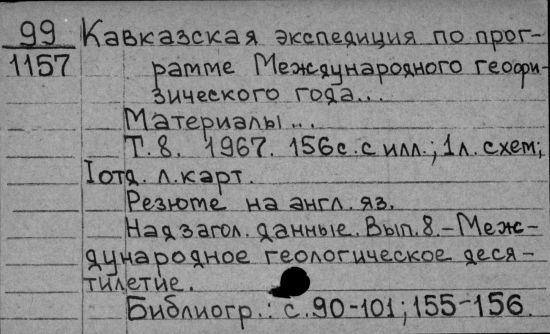 99 Кавказская экспедиция по прог-
1157 рамме Международного геофи-
зического года...
Материалы...
Т. 8. 1967. 156с. с илл.; 1л. схем;
1отд. л. карт.
Резюме на англ. яз.
Надзагол. данные. Вып. 8. - Меж-
дународное геологическое деся-
тилетие.
Библиогр.: с. 90-101; 155-156.